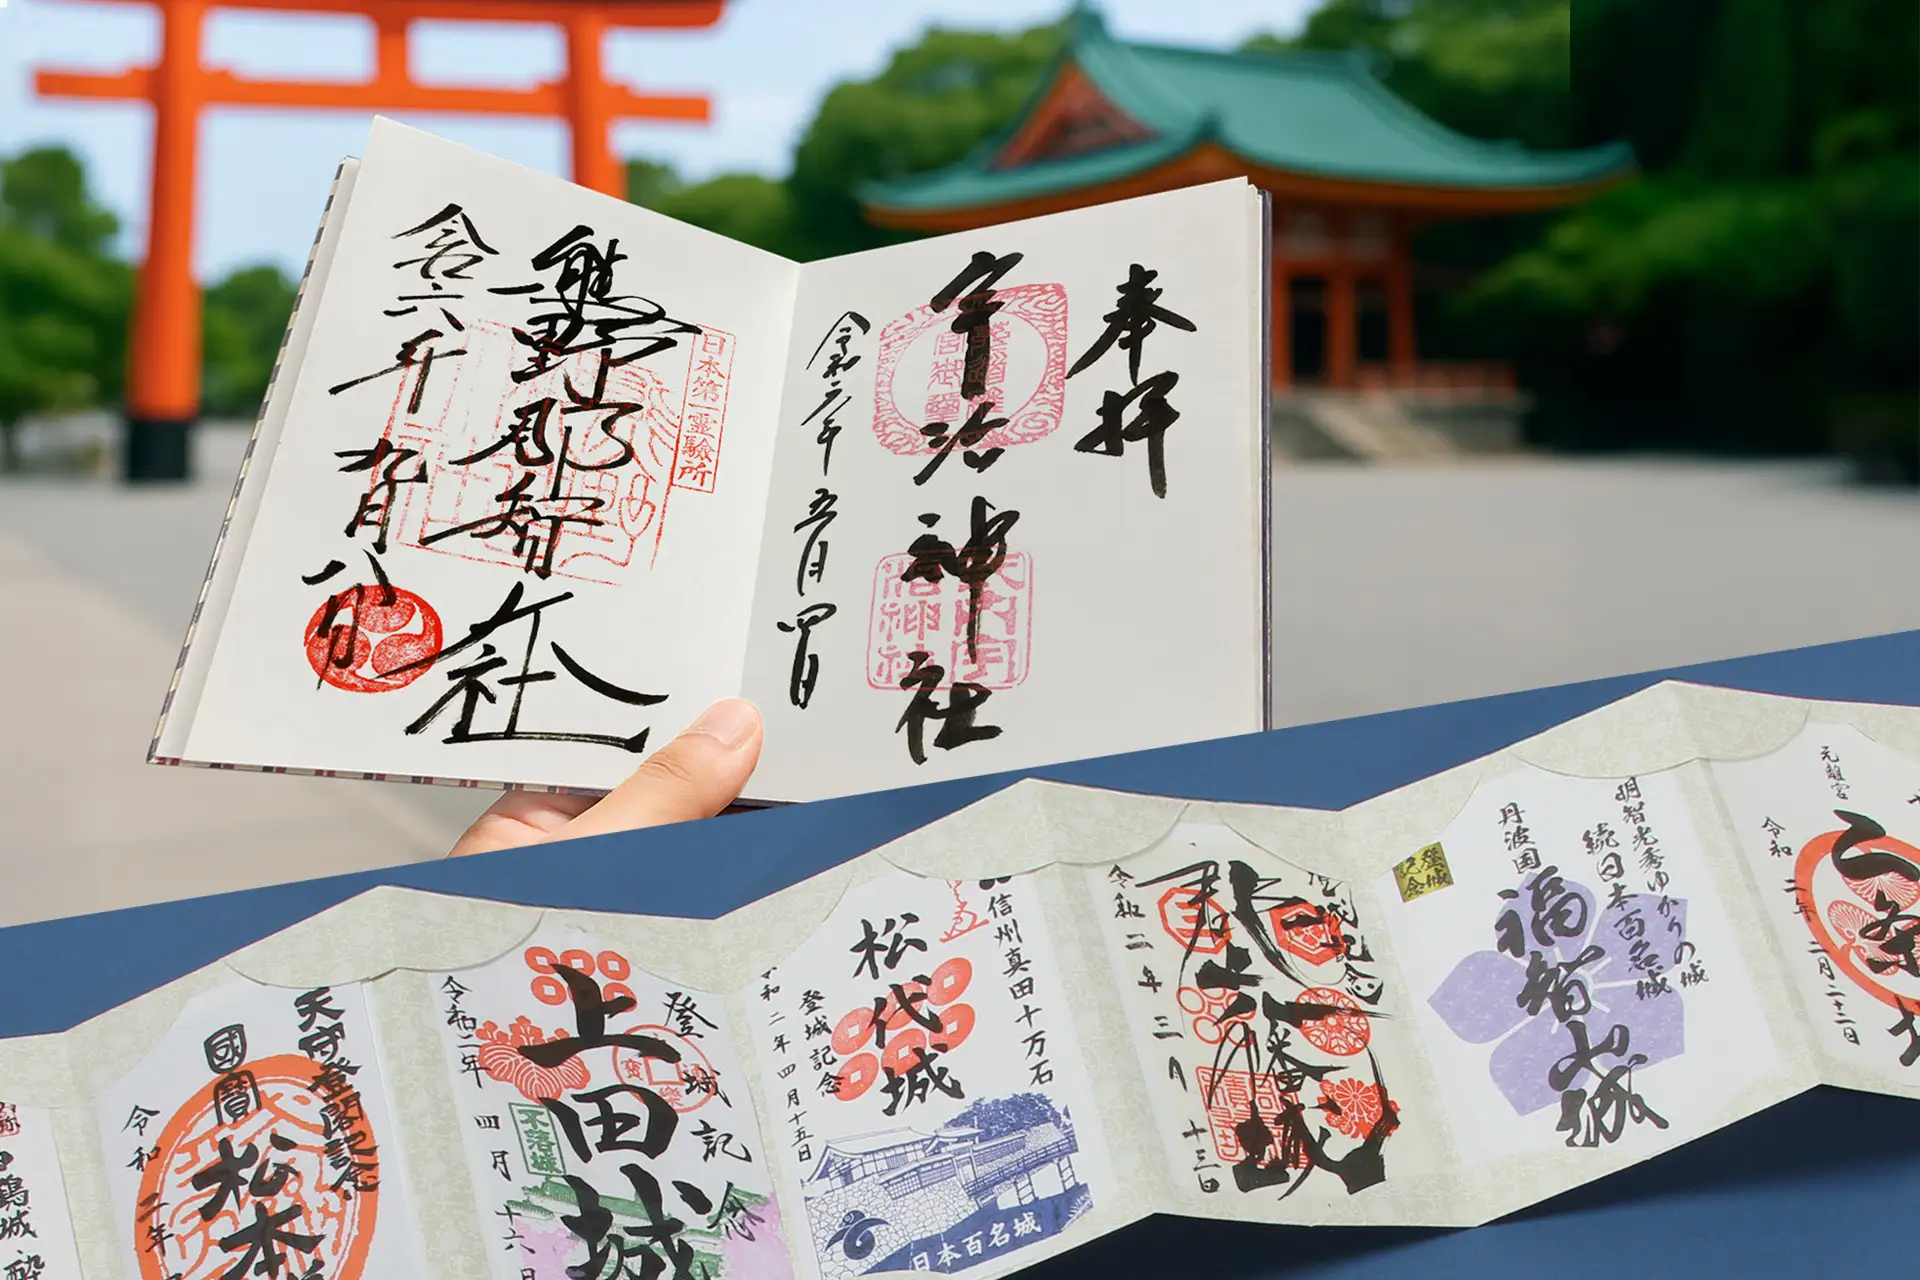 奉拝
宇治神社
五月四日
日本第一霊験所
熊野那智大社
九月八日
鶴城
天守登閣記念
國寶
松本
令和二年
登城記念
上田城
不落城
令和二年四月十六日
信州真田十万石
松代城
登城記念
和二年四月十五日
日本百名城
登城記念
郡上八幡城
令和二年三月十三日
明智光秀ゆかりの城
続日本百名城
丹波国
福智山城
登城記念
元離宮
二条
令和二年二月二十二日